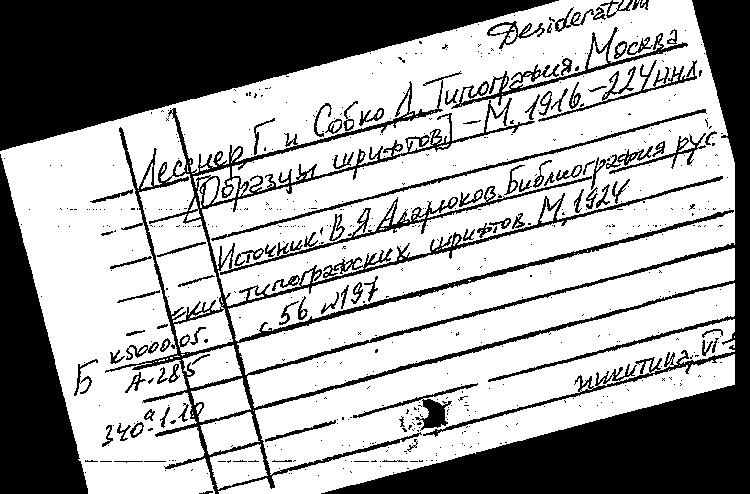 Desideratum
Лесснер, Г. и Собко, Л. Типография. Москва
[Образцы шрифтов] – М., 1916. – 224 ннл.
Источник: В.Я. Адарюков. Библиография рус-
ских типографских шрифтов. М, 1924
с. 56, №197
Б к5000.05.
А-285
340а.1.10
никитина, VI-